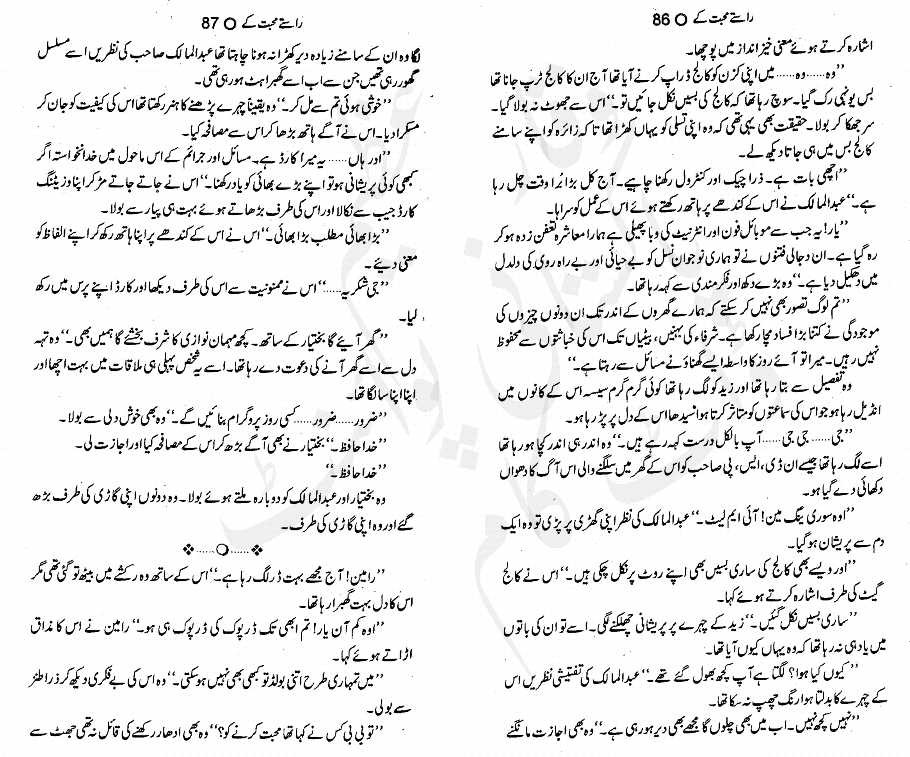 راستے محبت کے O 86
اشارہ کرتے ہوئے معنی خیز انداز میں پوچھا۔
’’وہ......وہ......میں اپنی کزن کو کالج ڈراپ کرنے آیا تھا آج ان کا کالج ٹرپ جانا تھا
بس یونہی رک گیا۔ سوچ رہا تھا کہ کالج کی بسیں نکل جائیں تو۔‘‘ اس سے جھوٹ نہ بولا گیا۔
سر جھکا کر بولا۔ حقیقت بھی یہی تھی کہ وہ اپنی تسلی کو یہاں کھڑا تھا تاکہ زائرہ کو اپنے سامنے
کالج بس میں ہی جاتا دیکھ لے۔
’’اچھی بات ہے۔ ذرا چیک اور کنٹرول رکھنا چاہیے۔ آج کل بڑا برُا وقت چل رہا
ہے۔‘‘ عبدالمالک نے اس کے کندھے پر ہاتھ رکھتے ہوئے اس کے عمل کو سراہا۔
’’یار! یہ جب سے موبائل فون اور انٹرنیٹ کی وبا پھیلی ہے ہمارا معاشرہ تعفن زدہ ہو کر
رہ گیا ہے۔ ان دجالی فتنوں نے تو ہماری نوجوان نسل کو بے حیائی اور بے راہ روی کی دلدل
میں دھکیل دیا ہے۔‘‘ وہ بڑے دکھ اور فکر مندی سے کہہ رہا تھا۔
’’تم لوگ تصور بھی نہیں کر سکتے کہ ہمارے گھروں کے اندر تک ان دونوں چیزوں کی
موجودگی نے کتنا بڑا فساد مچا رکھا ہے۔ شرفاء کی بہنیں، بیٹیاں تک اس کی خباثتوں سے محفوظ
نہیں رہیں۔ میرا تو آئے روز کا واسطہ ایسے گھناؤنے مسائل سے رہتا ہے۔‘‘
وہ تفصیل سے بتا رہا تھا اور زید کو لگ رہا تھا کوئی گرم گرم سیسہ اس کے کانوں میں
انڈیل رہا ہو جو اس کی سماعتوں کو متاثر کرتا ہوا سیدھا اس کے دل پر پڑ رہا ہو۔
’’جی......جی جی......آپ بالکل درست کہہ رہے ہیں۔‘‘ وہ اندر ہی اندر کچا ہو رہا تھا
اسے لگ رہا تھا جیسے ان ڈی، ایس، پی صاحب کو اس کے گھر میں سلگنے والی اس آگ کا دھواں
دکھائی دے گیا ہو۔
’’اوہ سوری ینگ مین! آئی ایم لیٹ۔‘‘ عبدالمالک کی نظر اپنی گھڑی پر پڑی تو وہ ایک
دم سے پریشان ہو گیا۔
’’اور ویسے بھی کالج کی ساری بسیں بھی اپنے روٹ پر نکل چکی ہیں۔‘‘ اس نے کالج
گیٹ کی طرف اشارہ کرتے ہوئے کہا۔
’’ساری بسیں نکل گئیں۔‘‘ زید کے چہرے پر پریشانی چھلکنے لگی۔ اسے تو ان کی باتوں
میں یاد ہی نہ رہا تھا کہ وہ یہاں کیوں آیا تھا۔
’’کیوں کیا ہوا؟ لگتا ہے آپ کچھ بھول گئے تھے۔‘‘ عبدالمالک کی تفتیشی نظریں اس
کے چہرے کا بدلتا ہوا رنگ چھپ نہ سکا تھا۔
’’نہیں کچھ نہیں۔ اب میں بھی چلوں گا مجھے بھی دیر ہو رہی ہے۔‘‘ وہ بھی اجازت مانگنے
راستے محبت کے O 87
لگا وہ ان کے سامنے زیادہ دیر کھڑا نہ ہونا چاہتا تھا عبدالمالک صاحب کی نظریں اسے مسلسل
گھور رہی تھیں جن سے اب اسے گھبراہٹ ہو رہی تھی۔
’’خوشی ہوئی تم سے مل کر۔‘‘ وہ یقیناً چہرے پڑھنے کا ہنر رکھتا تھا اس کی کیفیت کو جان کر
مسکرا دیا۔ اس نے آگے ہاتھ بڑھا کر اس سے مصافحہ کیا۔
’’اور ہاں......یہ میرا کارڈ ہے۔ مسائل اور جرائم کے اس ماحول میں خدانخواستہ اگر
کبھی کوئی پریشانی ہو تو اپنے بڑے بھائی کو یاد رکھنا۔‘‘ اس نے جاتے جاتے مڑ کر اپنا وزیٹنگ
کارڈ جیب سے نکالا اور اس کی طرف بڑھاتے ہوئے بہت ہی پیار سے بولا۔
’’بڑا بھائی مطلب بڑا بھائی۔‘‘ اس نے اس کے کندھے پر اپنا ہاتھ رکھ کر اپنے الفاظ کو
معنی دیئے۔
’’جی شکریہ......‘‘ اس نے ممنونیت سے اس کی طرف دیکھا اور کارڈ اپنے پرس میں رکھ
لیا۔
’’گھر آیئے گا بختیار کے ساتھ۔ کچھ مہمان نوازی کا شرف بخشئے گا ہمیں بھی۔‘‘ وہ تہہ
دل سے اسے گھر آنے کی دعوت دے رہا تھا۔ اسے یہ شخص پہلی ہی ملاقات میں بہت اچھا اور
اپنا اپنا سا لگا تھا۔
’’ضرور......ضرور......کسی روز پروگرام بنائیں گے۔‘‘ وہ بھی خوش دلی سے بولا۔
’’خدا حافظ۔‘‘ بختیار نے بھی آگے بڑھ کر اس کے مصافحہ کیا اور اجازت لی۔
’’خدا حافظ۔‘‘
وہ بختیار اور عبدالمالک کو دوبارہ ملتے ہوئے بولا۔ وہ دونوں اپنی گاڑی کی طرف بڑھ
گئے اور وہ اپنی گاڑی کی طرف۔
❖......O......❖
’’رامین! آج مجھے بہت ڈر لگ رہا ہے۔‘‘ اس کے ساتھ وہ رکشے میں بیٹھ تو گئی تھی مگر
اس کا دل بہت گھبرا رہا تھا۔
’’اوہ کم آن یار! تم ابھی تک ڈرپوک کی ڈرپوک ہی ہو۔‘‘ رامین نے اس کا مذاق
اڑاتے ہوئے کہا۔
’’میں تمہاری طرح اتنی بولڈ تو کبھی بھی نہیں ہو سکتی۔‘‘ وہ اس کی بے فکری دیکھ کر ذرا طنز
سے بولی۔
’’تو بی بی کس نے کہا تھا محبت کرنے کو؟‘‘ وہ بھی ادھار رکھنے کی قائل نہ تھی جھٹ سے